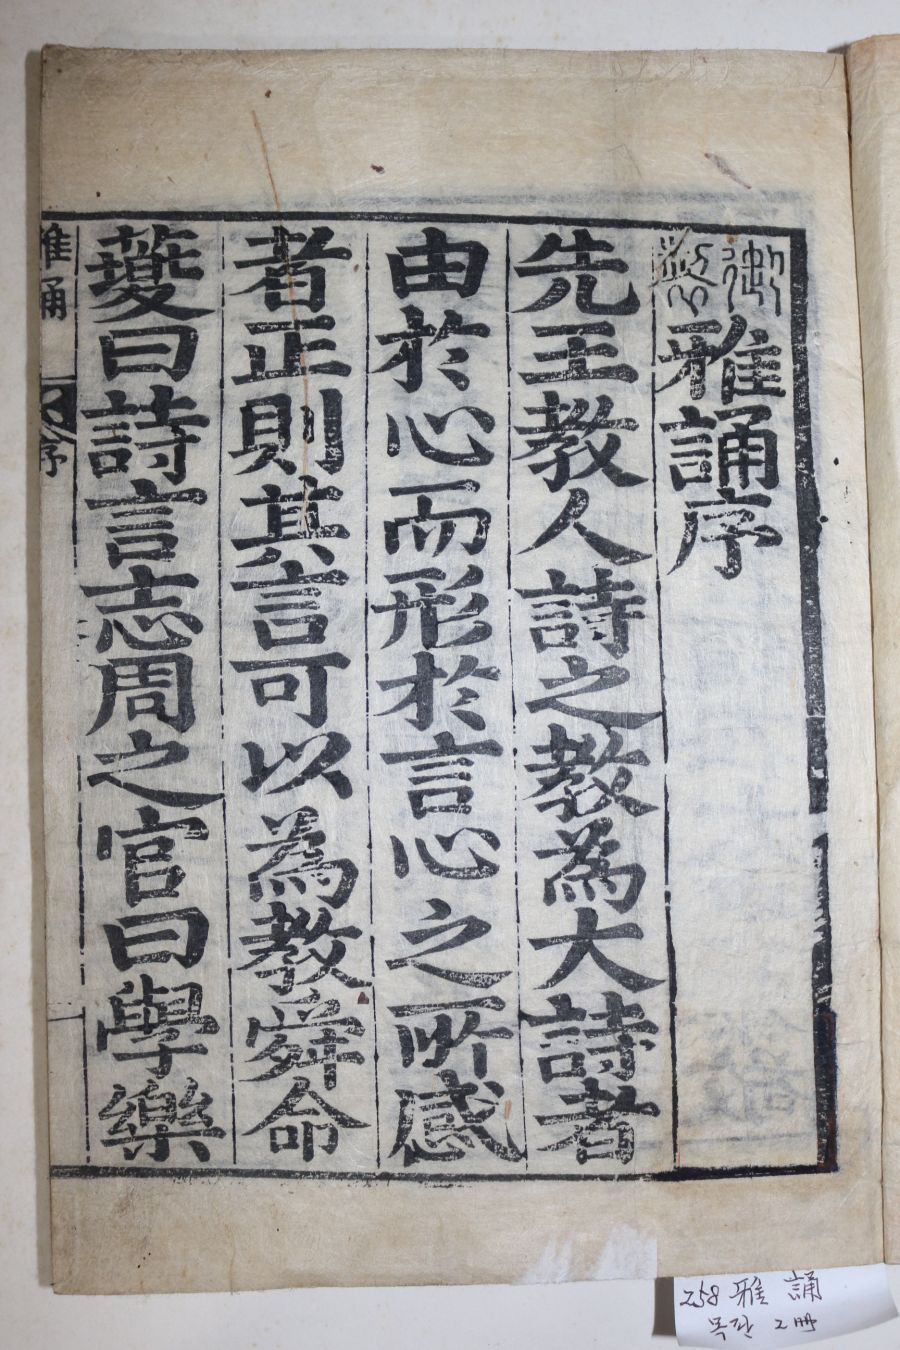 御製雅誦序
先王教人詩之教為大詩者
由於心而形於言心之所感
者正則其言可以為教舜命
夔曰詩言志周之官曰學樂
雅誦
序
258 雅誦
목판 2冊